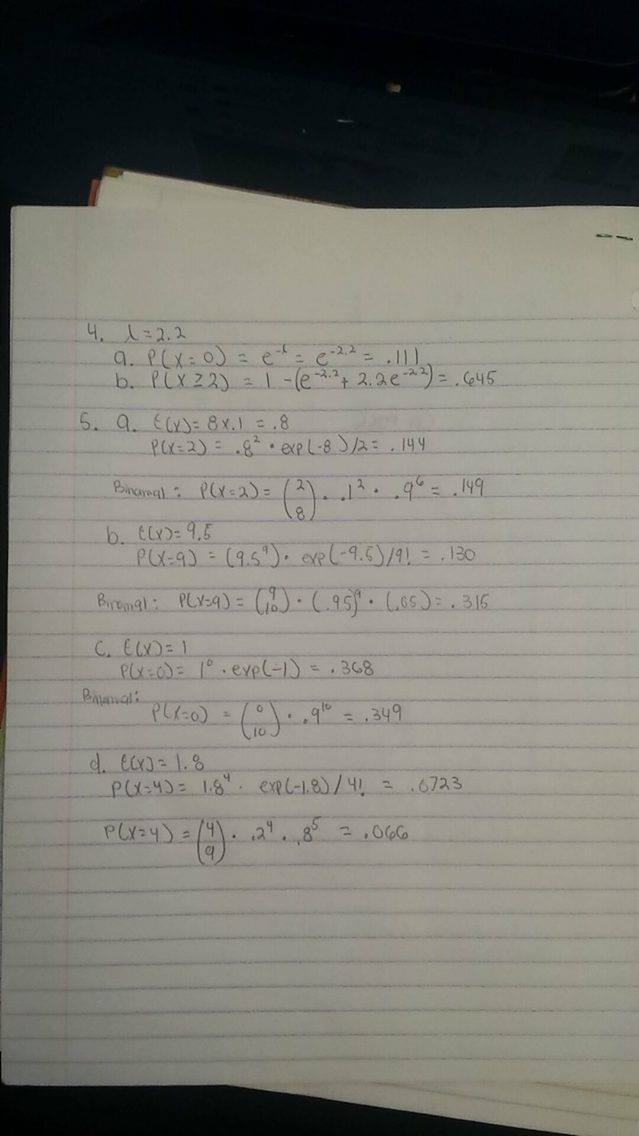 4. λ=2.2
a. P(X=0) = e^-λ = e^-2.2 = .111
b. P(X≥2) = 1-(e^-2.2 + 2.2e^-2.2) = .645
5. a. E(x)= 8x.1 = .8
P(x=2) = .8² · exp(-8)/2 = .144
Binomal: P(x=2) = (2 8) · .1² · .9⁶ = .149
b. E(x)= 9.5
P(x=9) = (9.5⁹) · exp(-9.5)/9! = .130
Binomal: P(x=9) = (9 10) · (.95)⁹ · (.05) = .315
c. E(x)= 1
P(x=0) = 1⁰ · exp(-1) = .368
Binomal:
P(x=0) = (0 10) · .9¹⁰ = .349
d. E(x)= 1.8
P(x=4) = 1.8⁴ · exp(-1.8)/4! = .0723
P(x=4) = (4 9) · .2⁴ · .8⁵ = .066